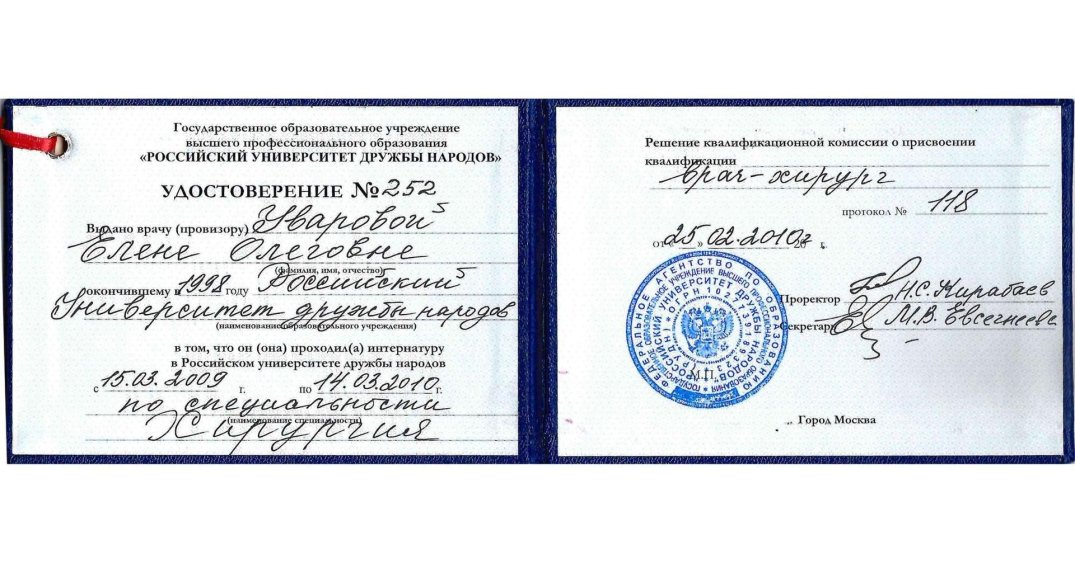 Государственное образовательное учреждение
высшего профессионального образования
«РОССИЙСКИЙ УНИВЕРСИТЕТ ДРУЖБЫ НАРОДОВ»
УДОСТОВЕРЕНИЕ №252
Выдано врачу (провизору) Уваровой
Елене Олеговне
(фамилия, имя, отчество)
окончившему в 1998 году Российский
Университет дружбы народов
(наименование образовательного учреждения)
в том, что он (она) проходил(а) интернатуру
в Российском университете дружбы народов
с 15.03.2009 г. по 14.03.2010 г.
по специальности
(наименование специальности)
Хирургия
Решение квалификационной комиссии о присвоении
квалификации
врач-хирург
протокол № 118
от « 25 » 02.2010г г.
Проректор Н.С. Кирабаев
Секретарь М.В. Евсегнеева
ФЕДЕРАЛЬНОЕ АГЕНТСТВО ПО ОБРАЗОВАНИЮ
РОССИЙСКИЙ УНИВЕРСИТЕТ ДРУЖБЫ НАРОДОВ
Город Москва